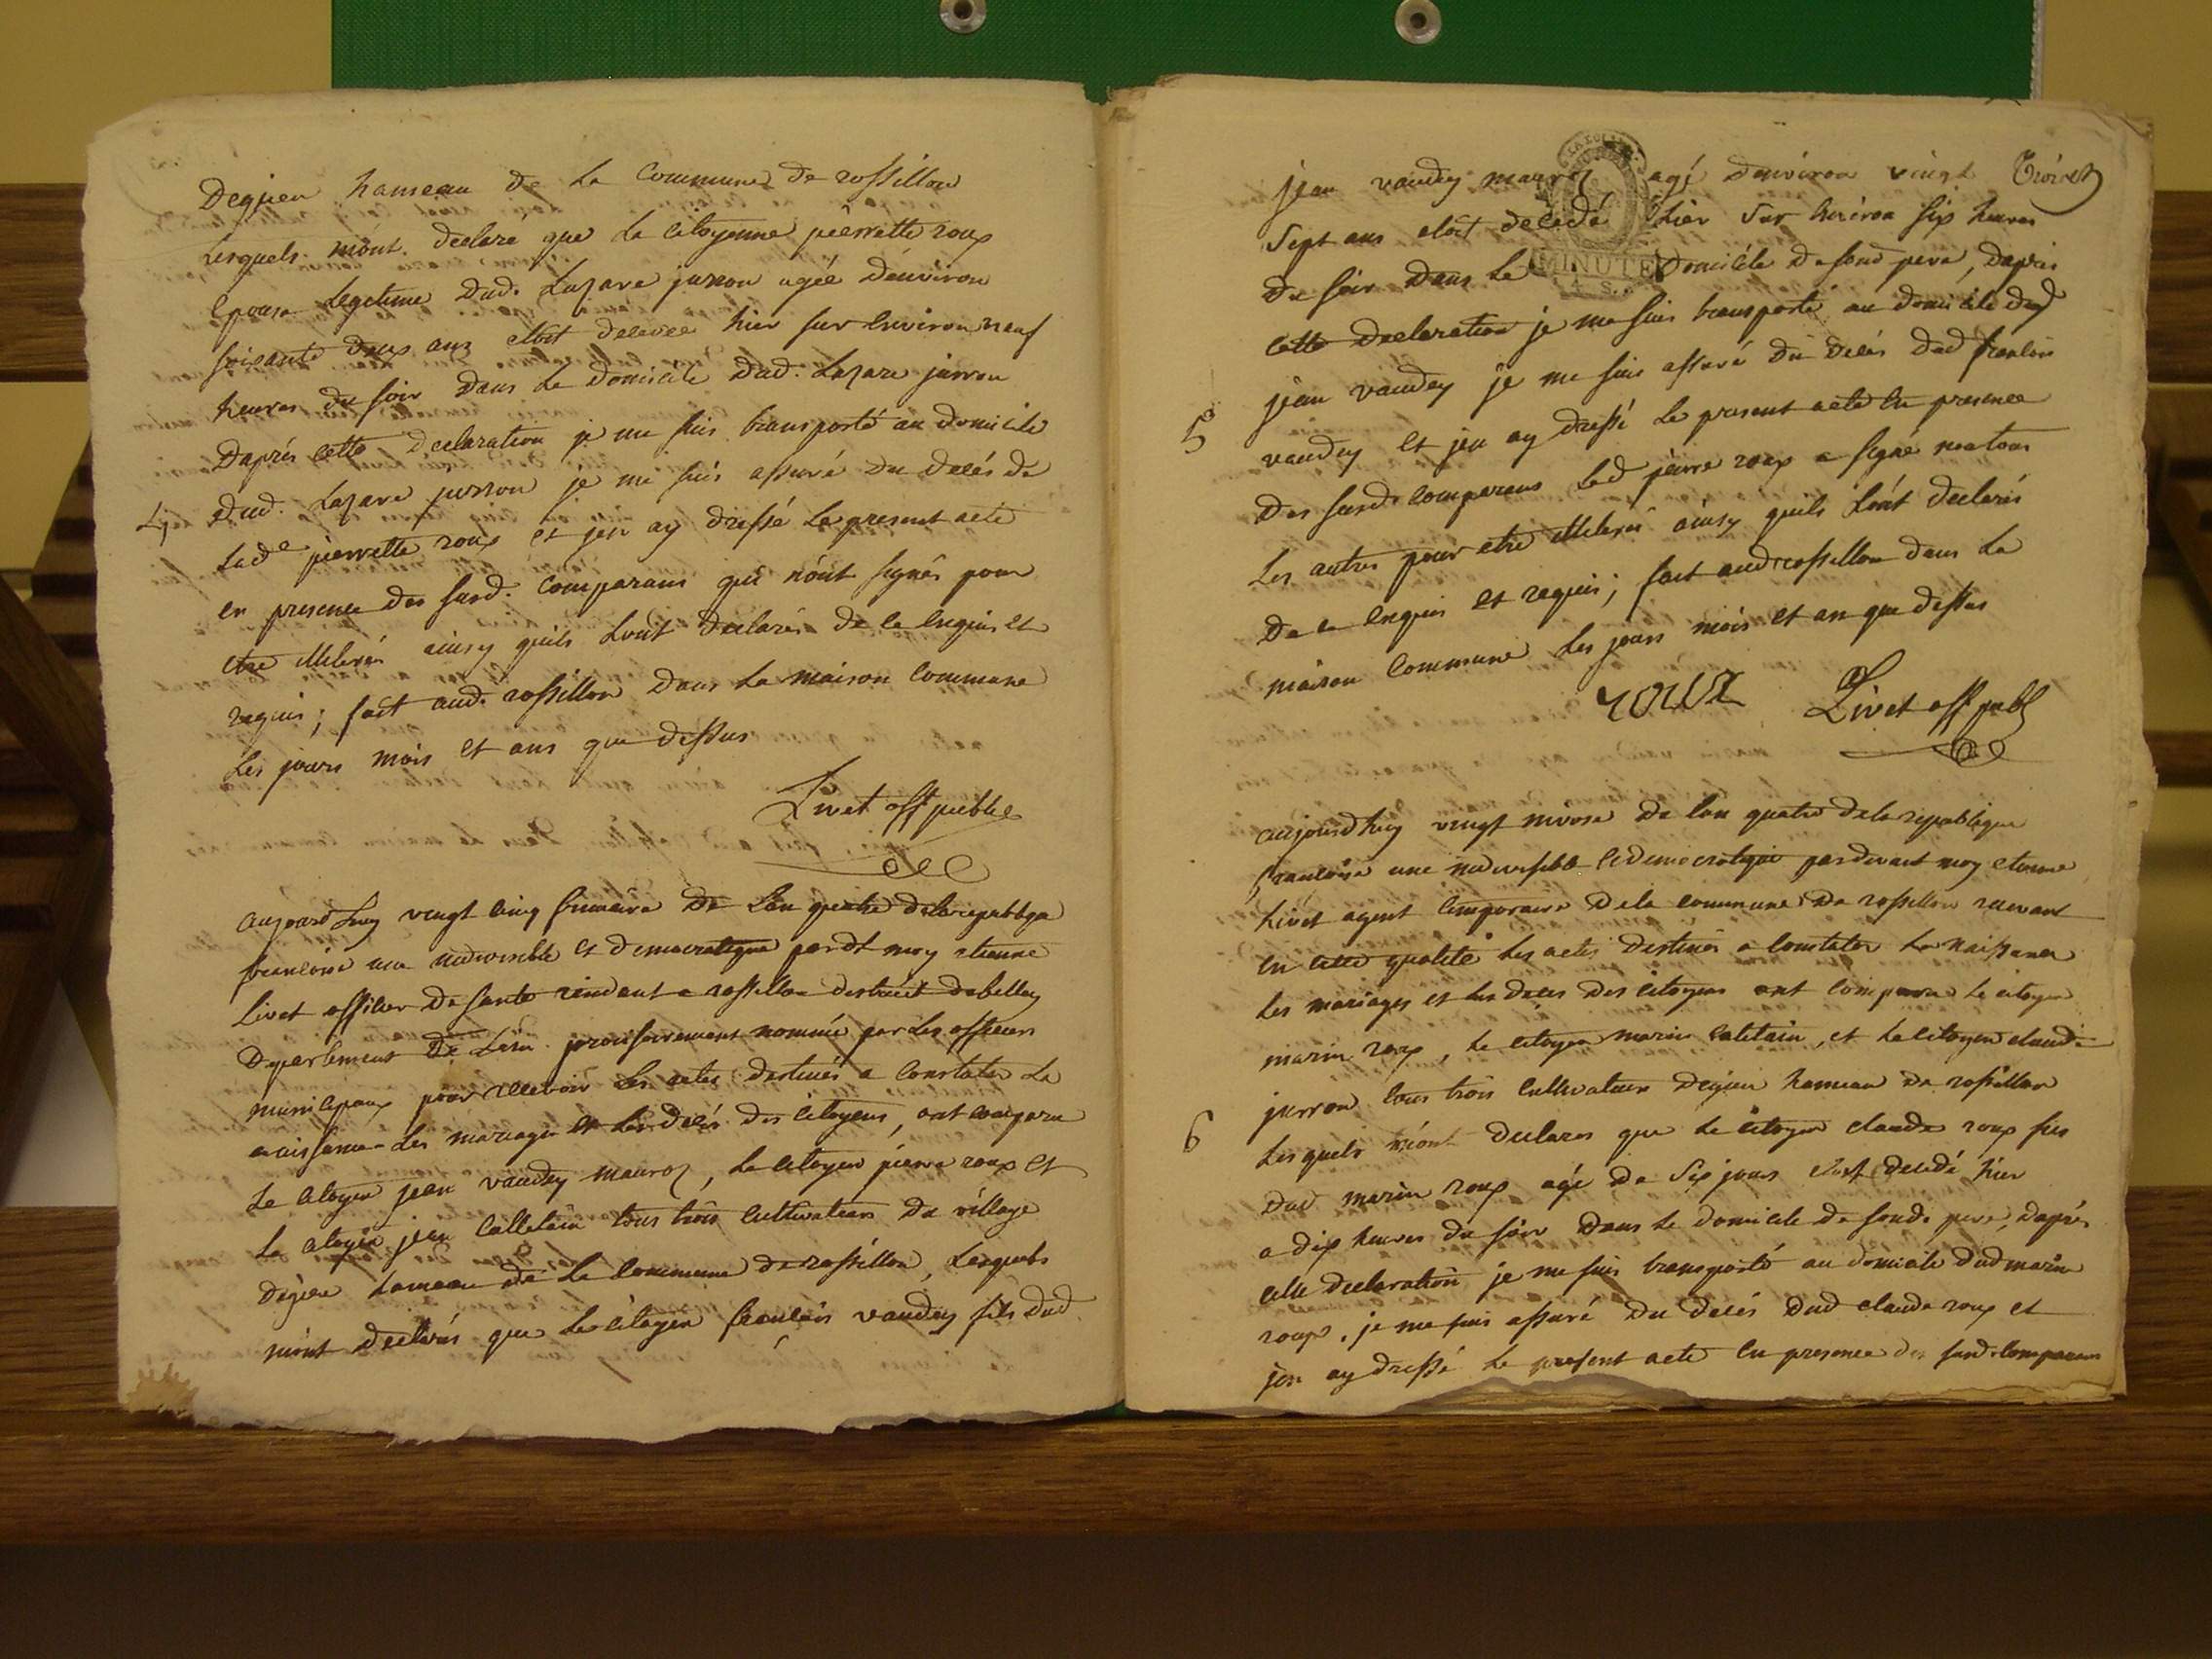 Degieu hameau de la Commune de rossillon
Lesquels m'ont declaré que la Citoyenne pierrette roux
epouse Legetime dud. Lazare juron agée denviron
soixante deux ans etoit decedee hier sur environ neuf
heures du soir dans le domicile dud. Lazare jurron
Daprés cette declaration je me suis transporté au domicile
dud. Lazare jurron je me suis assuré du decés de
4
Lade pierrette roux et jen ay dressé Le present acte
en presence des susd. Comparans qui nont signés pour
etre illiterés ainsy quils Lont declarés de ce enquis et
requis; fait aud. rossillon dans la maison Commune
Les jours mois et ans que dessus
Livet off publc
aujourdhuy vingt cinq frimaire de Lan quatre de la republqe
francoise une indivisible et democratique pardt moy etienne
Livet officier de santé residant a rossillon destrict de belley
Departement de Lain provisoirement nommé par Les officiers
municipaux pour recevoir Les actes destinés a constater La
naissance Les mariages et Les decés des citoyens, ont comparu
Le citoyen jean vaudey mauroz, Le citoyen pierre roux et
Le citoyen jean Callelain tous trois cultivateurs du village
degieu hameau de la Commune de rossillon, Lesquels
mont declarés que le citoyen francois vaudey fils dud
jean vaudey mauroz agé denviron vingt Trois
sept ans etoit decedé hier sur environ six heures
du soir dans le domicile de sond pere, daprés
MINUTE
cette declaration je me suis transporté au domicile dud
jean vaudey je me suis assuré du decés dud francois
5
vaudey et jen ay dressé le present acte en presence
des susd. comparens Led pierre roux a signé non tous
Les autres pour etre illiterés ainsy quils Lont declarés
de ce enquis et requis; fait aud rossillon dans La
maison Commune Les jours mois et an que dessus
roux Livet off publ
aujourdhuy vingt nivose de lan quatre de la republique
francoise une indivisible et democratique pardevant moy etienne
Livet agent temporaire de la commune de rossillon recevant
en cette qualité les actes destinés a constater La naissance
Les mariages et les decés des citoyens ont comparu Le citoyen
marin roux, Le citoyen marin Callelain, et Le citoyen claude
jurron tous trois cultivateurs degieu hameau de rossillon
6
Lesquels mont declarés que le citoyen claude roux fils
dud marin roux agé de six jours etoit decedé hier
a dix heures du soir dans le domicile de sond. pere, daprés
cette declaration je me suis transporté au domicile dud marin
roux, je me suis assuré du decés dud claude roux et
jen ay dressé Le present acte en presence des susd. comparens